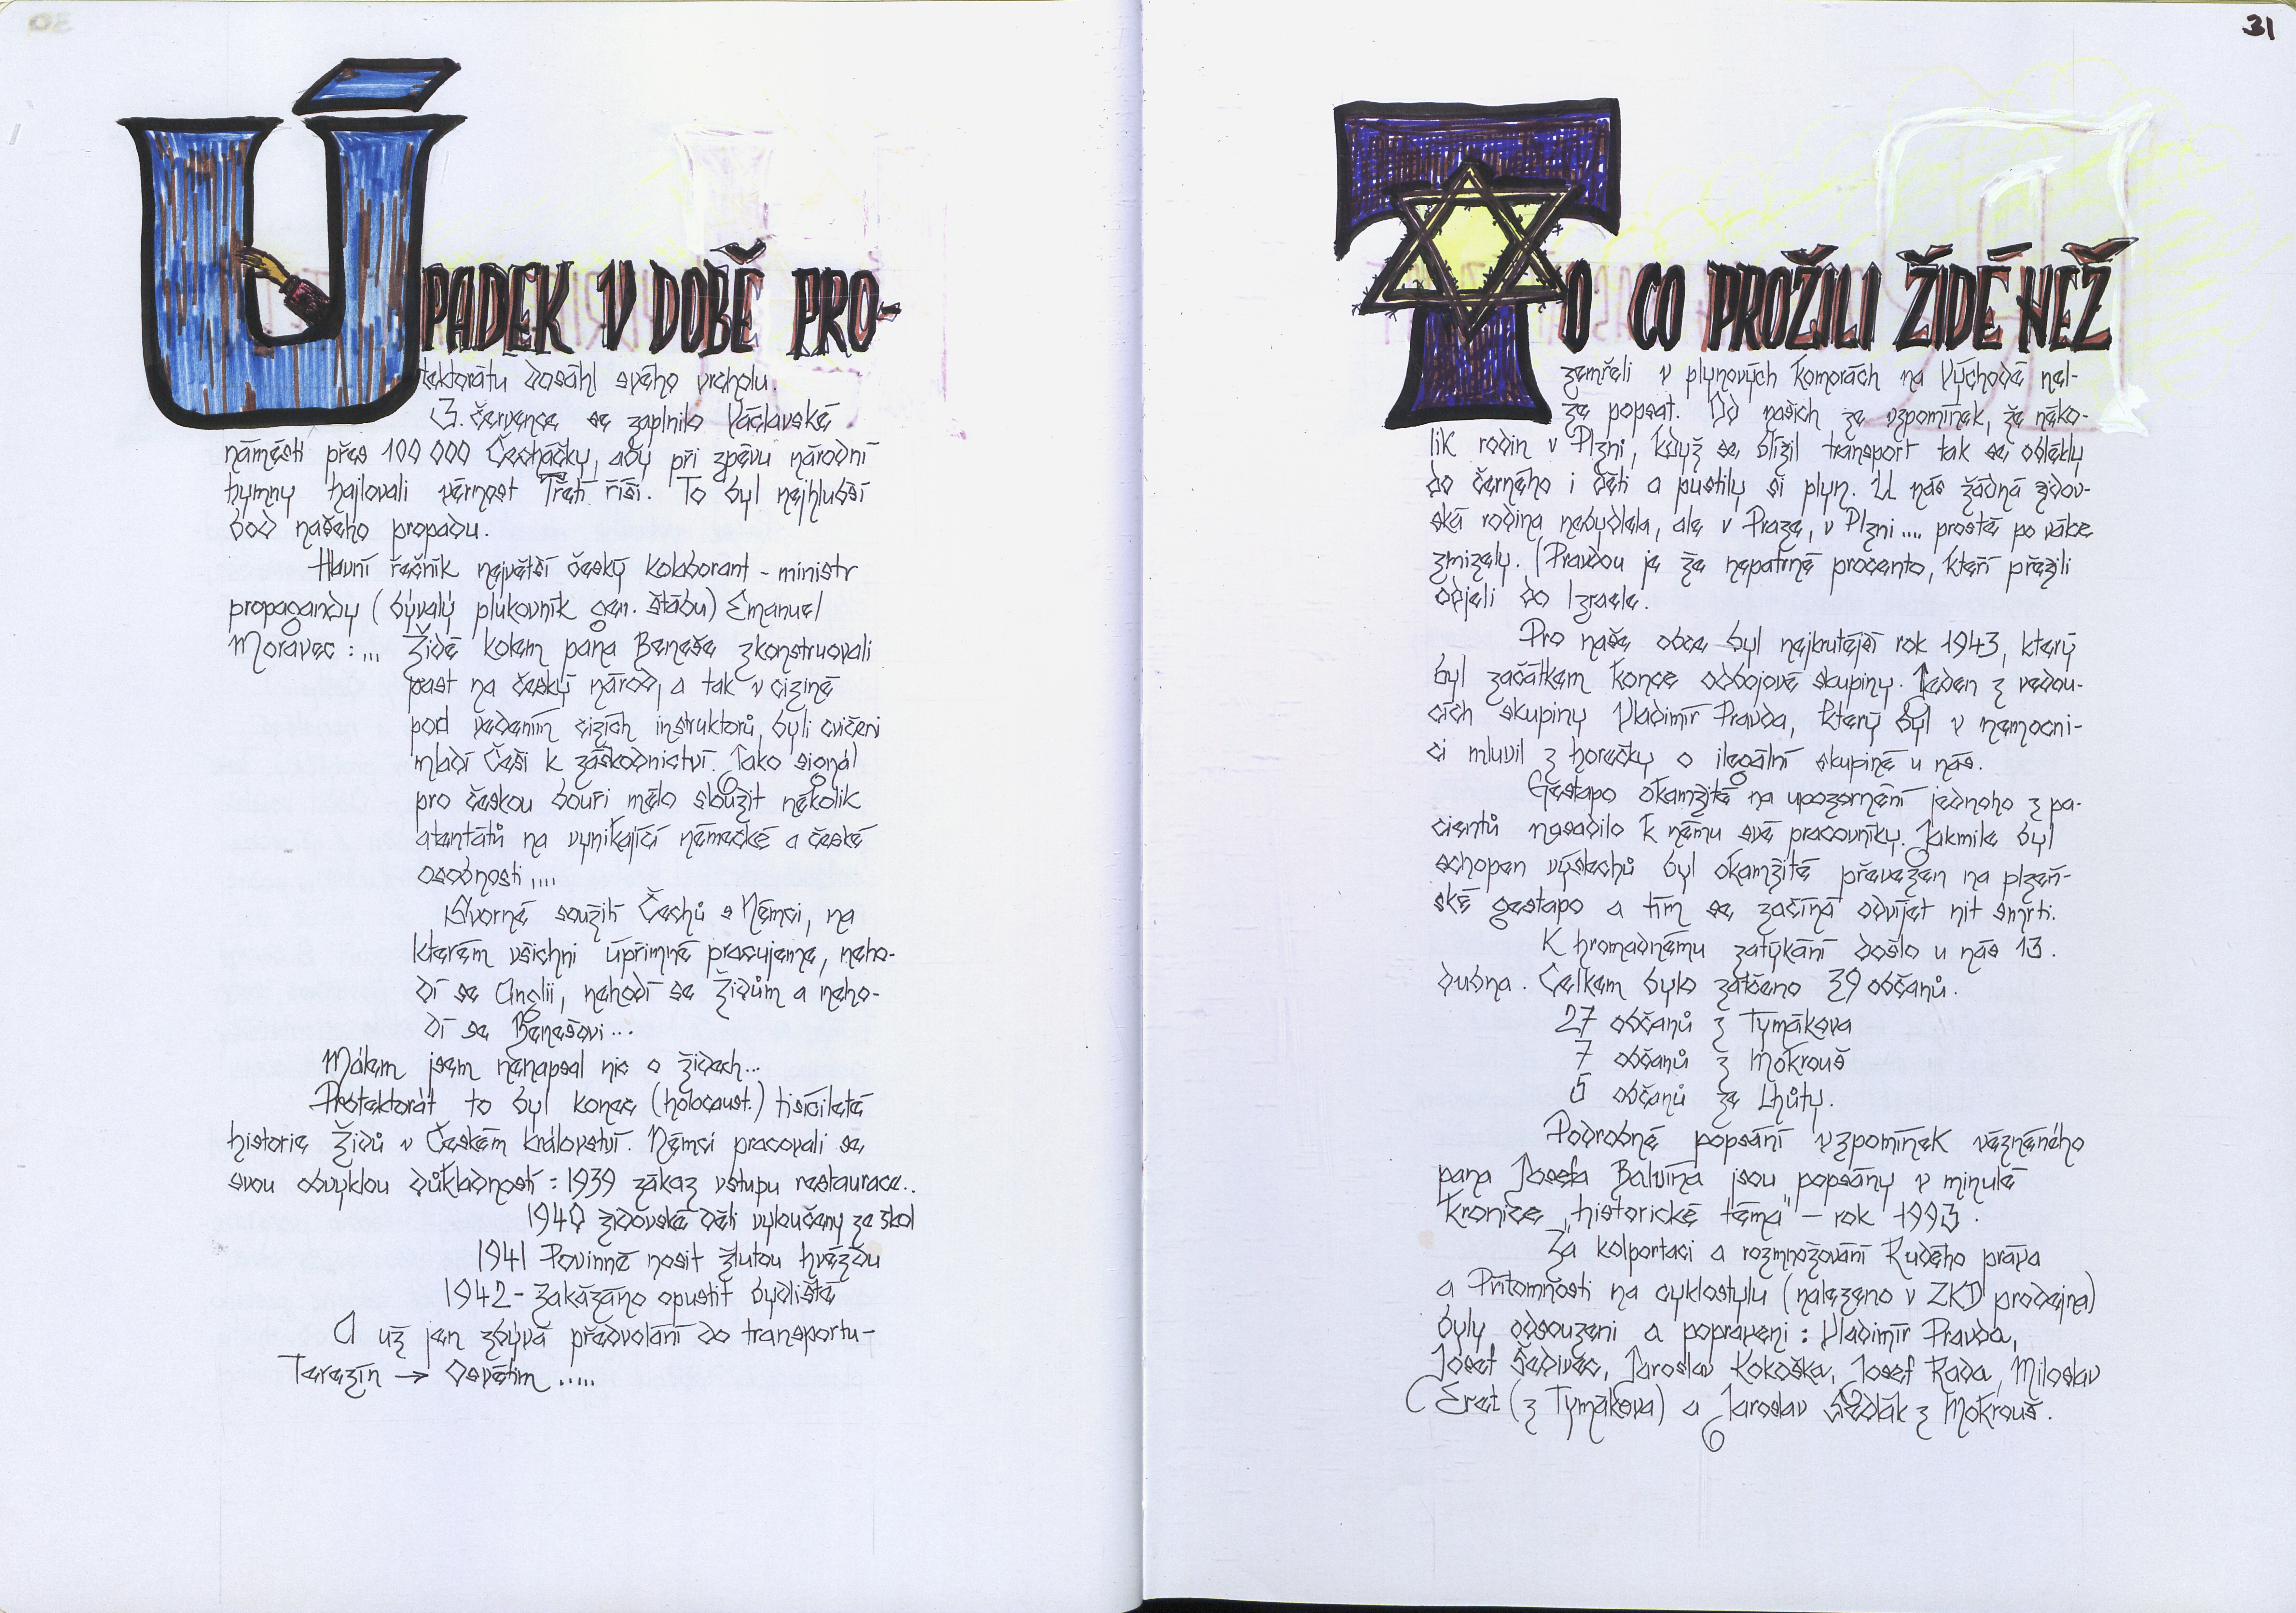 30
ÚPADEK V DOBĚ PRO-
tektorátu dosáhl svého vrcholu.
3. července se zaplnilo Václavské
náměstí přes 100 000 Čecháčky, aby při zpěvu národní
hymny hajlovali věrnost Třetí říši. To byl nejhlubší
bod našeho propadu.
Hlavní řečník největší český kolaborant - ministr
propagandy (bývalý plukovník gen. štábu) Emanuel
Moravec :... Židé kolem pana Beneše zkonstruovali
past na český národ, a tak v cizině
pod vedením cizích instruktorů, byli cvičeni
mladí Češi k záškodnictví. Jako signál
pro českou bouři mělo sloužit několik
atentátů na vynikající německé a české
osobnosti ....
Svorné soužití Čechů s Němci, na
kterém všichni úpřímně pracujeme, neho-
dí se Anglii, nehodí se Židům a neho-
dí se Benešovi...
Málem jsem nenapsal nic o židech...
Protektorát to byl konec (holocaust.) tisícileté
historie Židů v Českém království. Němci pracovali se
svou obvyklou důkladností : 1939 zákaz vstupu restaurace..
1940 židovské děti vyloučeny ze škol
1941 Povinně nosit žlutou hvězdu
1942 - Zakázáno opustit bydliště
A už jen zbývá předvolání do transportu -
Terezín → Osvětim .....
31
TO CO PROŽILI ŽIDÉ NEŽ
zemřeli v plynových komorách na Východě nel-
ze popsat. Od našich ze vzpomínek, že něko-
lik rodin v Plzni, když se blížil transport tak se oblékly
do černého i děti a pustily si plyn. U nás žádná židov-
ská rodina nebydlela, ale v Praze, v Plzni .... prostě po válce
zmizely. (Pravdou je že nepatrné procento, kteří přežili
odjeli do Izraele.
Pro naše obce byl nejkrutější rok 1943, který
byl začátkem konce odbojové skupiny. Jeden z vedou-
cích skupiny Vladimír Pravda, který byl v nemocni-
ci mluvil z horečky o ilegální skupině u nás.
Gestapo okamžitě na upozornění jednoho z pa-
cientů nasadilo k němu své pracovníky. Jakmile byl
schopen výslechů byl okamžitě převezen na plzeň-
ské gestapo a tím se začíná odvíjet nit smrti.
K hromadnému zatýkání došlo u nás 13.
dubna. Celkem bylo zatčeno 39 občanů.
27 občanů z Tymákova
7 občanů z Mokrouš
5 občanů ze Lhůty.
Podrobné popsání vzpomínek vězněného
pana Josefa Balvína jsou popsány v minulé
kronice „historické téma" - rok 1993.
Za kolportaci a rozmnožování Rudého práva
a Přítomnosti na cyklostylu (nalezeno v ZKD prodejna)
byly odsouzeni a popraveni : Vladimír Pravda,
Josef Šedivec, Jaroslav Kokoška, Josef Rada, Miloslav
Eret (z Tymákova) a Jaroslav Sedlák z Mokrouš.